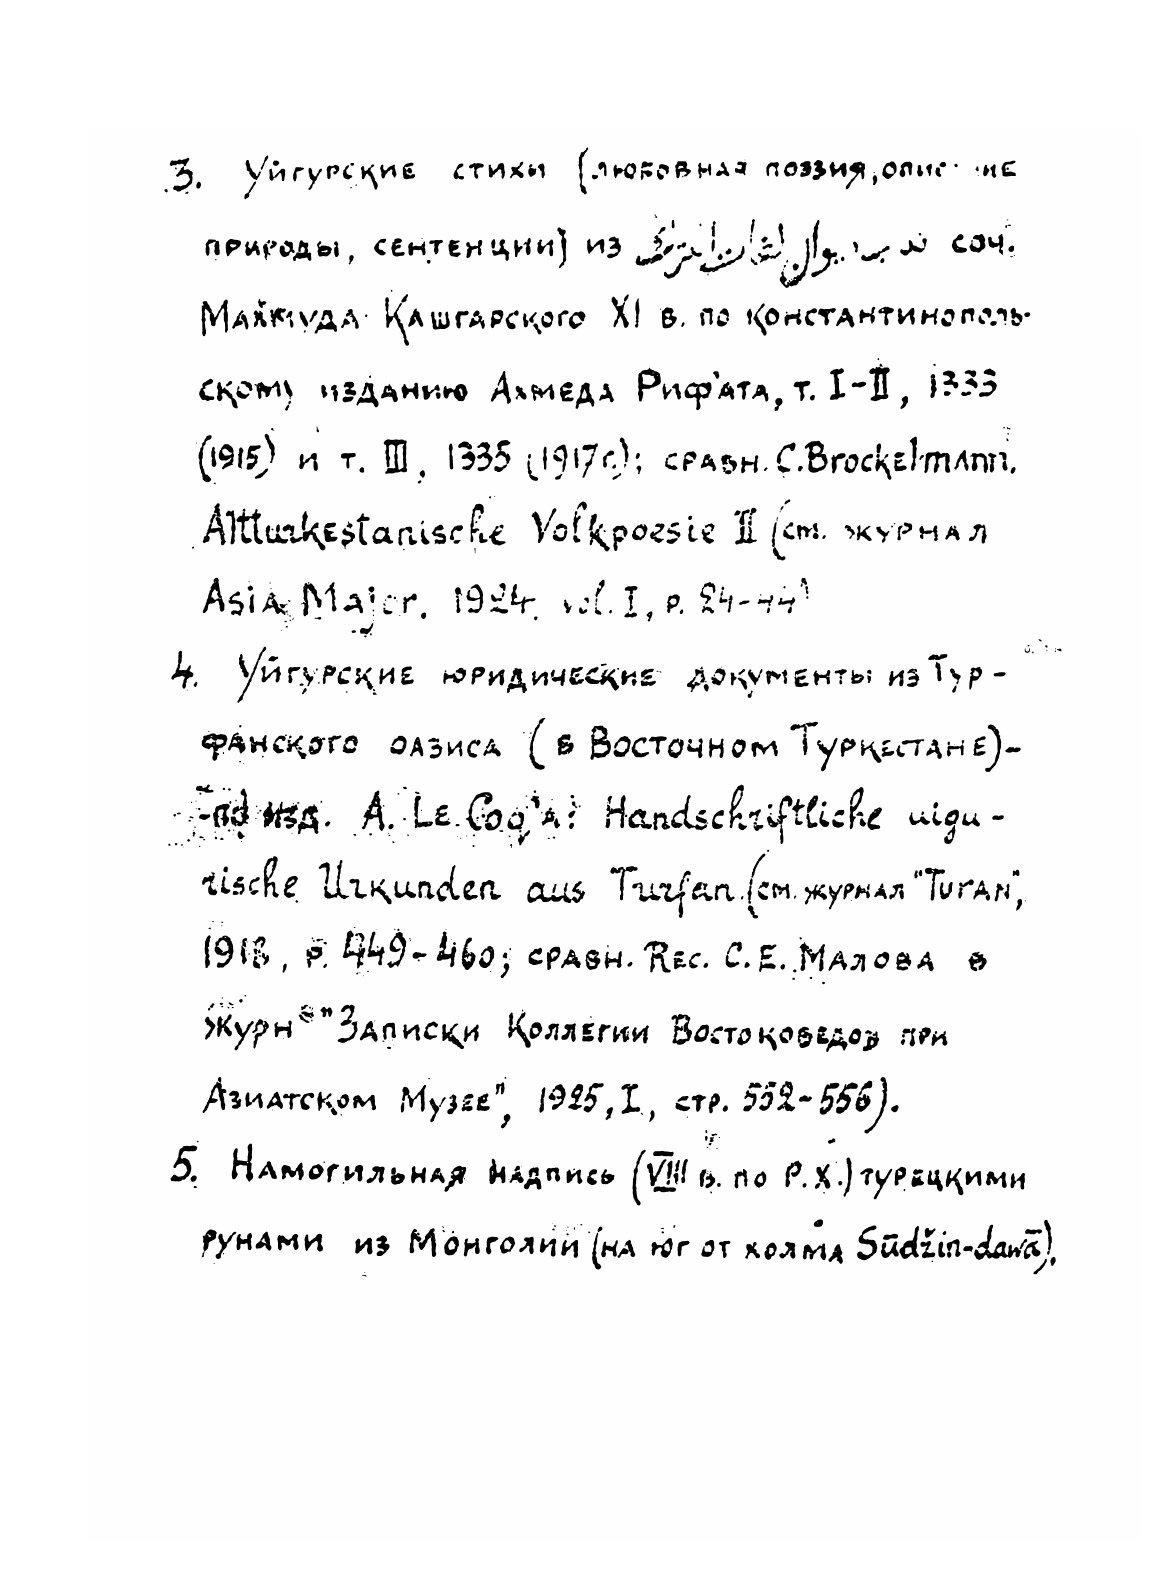 3. Уйгурские стихи (любовная поэзия, описание
природы, сентенции) из ديوان لغات الترك соч.
Махмуда Кашгарского XI в. по константинополь-
скому изданию Ахмеда Риф'ата, т. I-II, 1333
(1915) и т. III, 1335 (1917 г.); сравн. C. Brockelmann.
Altturkestanische Volkpoesie II (см. журнал
Asia Major. 1924. vol. I, p. 24-44)
4. Уйгурские юридические документы из Тур-
фанского оазиса (в Восточном Туркестане)-
-по изд. A. Le Coq'a: Handschriftliche uigu-
rische Urkunden aus Turfan (см. журнал "Turan",
1918, p. 449-460; сравн. Rec. С. Е. Малова в
журн. "Записки Коллегии Востоковедов при
Азиатском Музее", 1925, I, стр. 552-556).
5. Намогильная надпись (VIII в. по Р. Х.) турецкими
рунами из Монголии (на юг от холма Sūdžin-dawā).